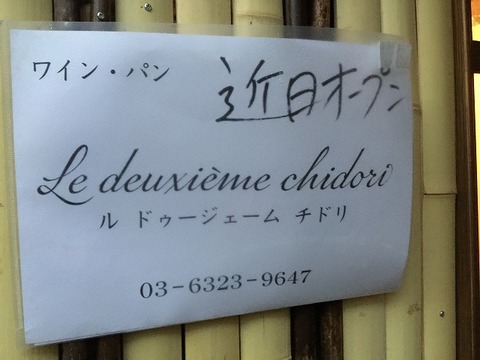 ワイン・パン
近日オープン
Le deuxième chidori
ル ドゥージェーム チドリ
03-6323-9647